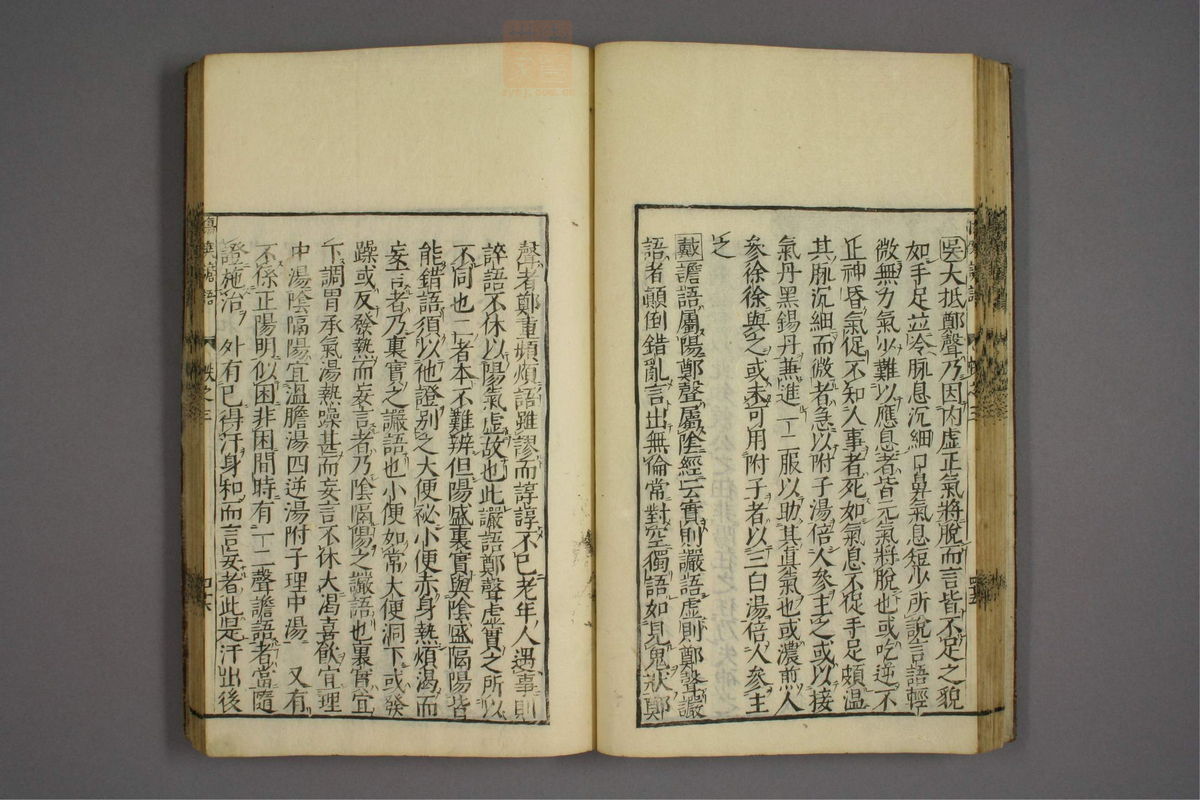 吳大抵鄭聲乃因内虛正氣將脫而言皆不足之貌
如手足並冷脉息沉細口鼻氣息短少所說言語輕
微無力氣少難以應息者皆元氣將脫也或吃逆不
止神昏氣促不知人事者死如氣息不促手足頗溫
其脉沉細而微者急以附子湯倍人參主之或以接
氣丹黑錫丹兼進一二服以助其真氣也或濃煎人
參徐徐與之或未可用附子者以三白湯倍人參主
之
戴譫語屬陽鄭聲屬陰經云實則讝語虛則鄭聲讝
語者顛倒錯亂言出無倫常對空獨語如見鬼狀鄭
聲者鄭重頻煩語雖謬而諄諄不已老年人遇事則
誶語不休以陽氣虛故也此讝語鄭聲虛實之所以
不同也二者本不難辨但陽盛裏實與陰盛隔陽皆
能錯語須以他證別之大便祕小便赤身熱煩渴而
妄言者乃裏實之讝語也小便如常大便洞下或發
躁或反發熱而妄言者乃陰隔陽之讝語也裏實宜
下調胃承氣湯熱躁甚而妄言不休大渴喜飲宜理
中湯陰隔陽宜溫膽湯四逆湯附子理中湯 又有
不係正陽明似困非困間時有一二聲譫語者當隨
證施治 外有已得汗身和而言妄者此是汗出後